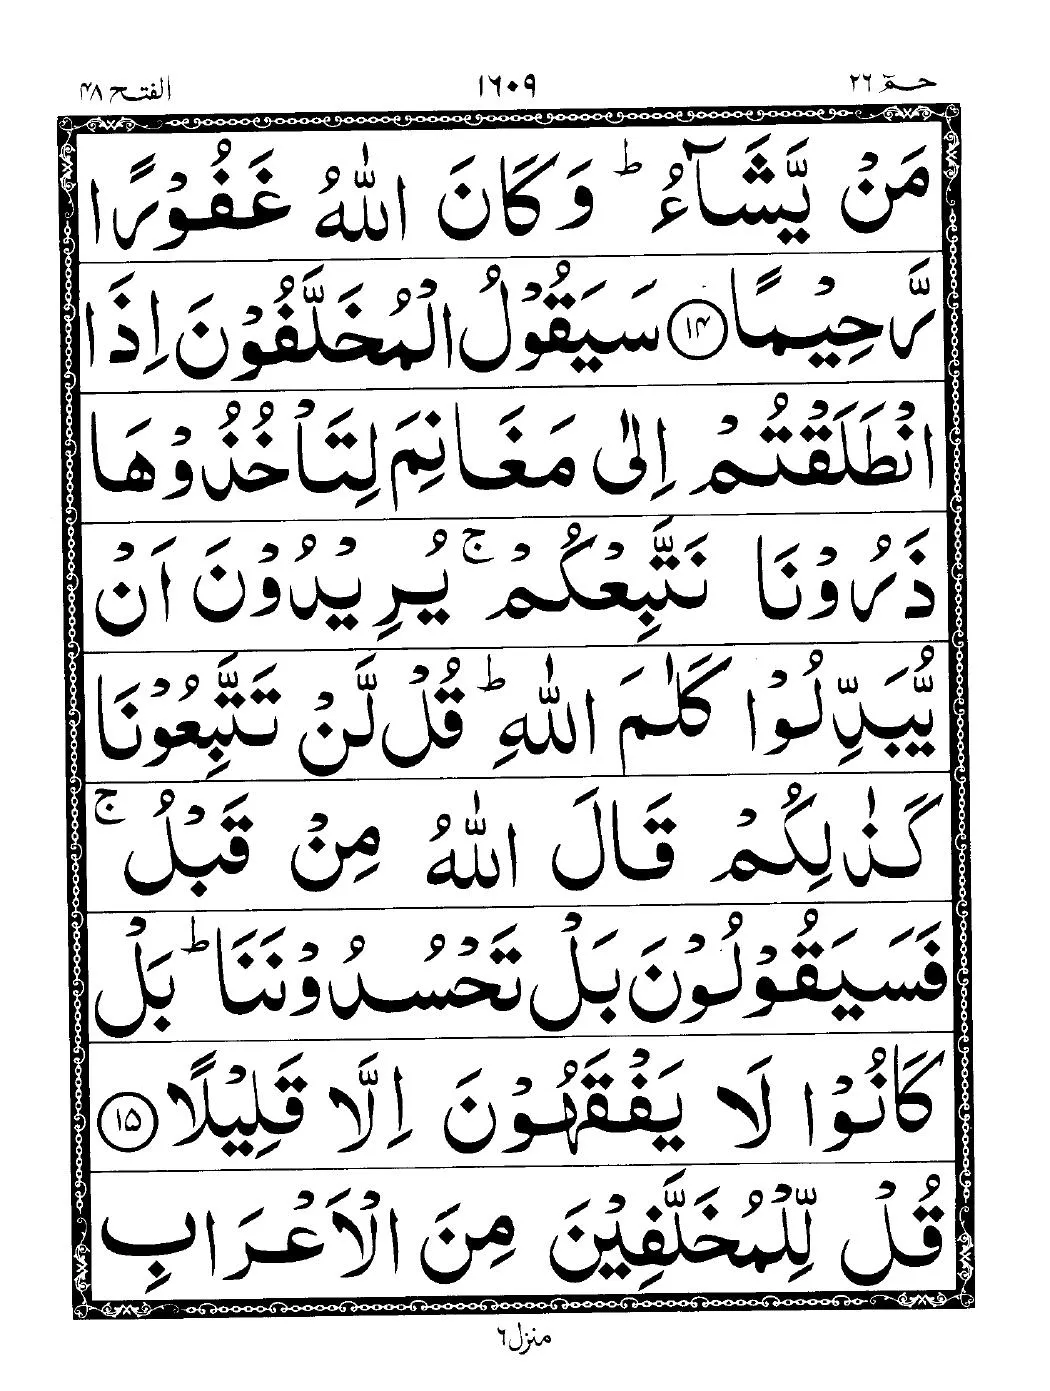 حـمٓ ٢٦
١٦٠٩
الفتح ٤٨
مَنْ يَّشَآءُ ؕ وَكَانَ اللّٰهُ غَفُوْرًا
رَّحِيْمًا ﴿۱۴﴾ سَيَقُوْلُ الْمُخَلَّفُوْنَ اِذَا
انْطَلَقْتُمْ اِلٰى مَغَانِمَ لِتَاْخُذُوْهَا
ذَرُوْنَا نَتَّبِعْكُمْ ۚ يُرِيْدُوْنَ اَنْ
يُّبَدِّلُوْا كَلٰمَ اللّٰهِ ؕ قُلْ لَّنْ تَتَّبِعُوْنَا
كَذٰلِكُمْ قَالَ اللّٰهُ مِنْ قَبْلُ ۚ
فَسَيَقُوْلُوْنَ بَلْ تَحْسُدُوْنَنَا ؕ بَلْ
كَانُوْا لَا يَفْقَهُوْنَ اِلَّا قَلِيْلًا ﴿۱۵﴾
قُلْ لِّلْمُخَلَّفِيْنَ مِنَ الْاَعْرَابِ
منزل ٦